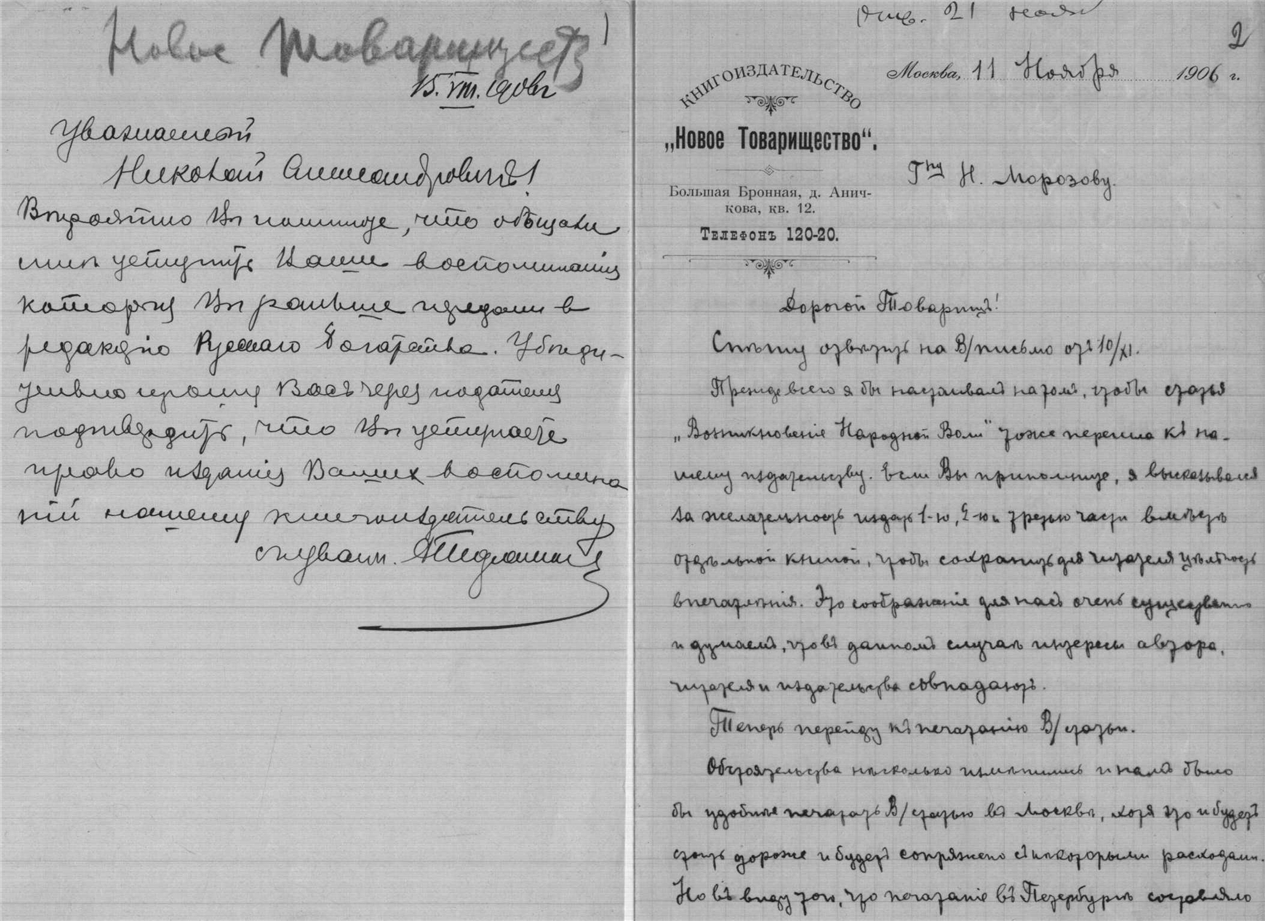 Новое Товарищество
1
15.VIII.1906 г
Уважаемый
Николай Александровичъ!
Вѣроятно Вы помните, что обѣщали
мнѣ уступить Ваши воспоминания
которыя Вы раньше передали в
редакцію Русскаго Богатства. Убѣди-
тельно прошу Васъ черезъ подателя
подтвердить, что Вы уступаете
право изданія Вашихъ воспомина
ній нашему книгоиздательству
съ уваж.
отв. 21 ноября
2
Москва, 11 Ноября 1906 г.
КНИГОИЗДАТЕЛЬСТВО
„Новое Товарищество“.
Большая Бронная, д. Анич-
кова, кв. 12.
Телефонъ 120-20.
Гну Н. Морозову.
Дорогой Товарищъ!
Спѣшу отвѣтить на В/письмо отъ 10/XI.
Прежде всего я бы настаивалъ на томъ, чтобы статья
„Возникновеніе Народной Воли“ тоже перешла къ на-
шему издательству. Если Вы припомните, я высказывался
за желательность издать 1-ю, 2-ю и третью части вмѣстѣ
отдѣльной книгой, чтобы сохранить для читателя цѣльность
впечатлѣнія. Это соображеніе для насъ очень существенно
и думаемъ, что въ данномъ случаѣ интересы автора,
читателя и издательства совпадаютъ.
Теперь перейду къ печатанію В/статьи.
Обстоятельства нѣсколько измѣнились и намъ было
бы удобнѣе печатать В/статью въ Москвѣ, хотя это и будетъ
стоить дороже и будетъ сопряжено съ нѣкоторыми расходами.
Но въ виду того, что печатаніе въ Петербургѣ составляло